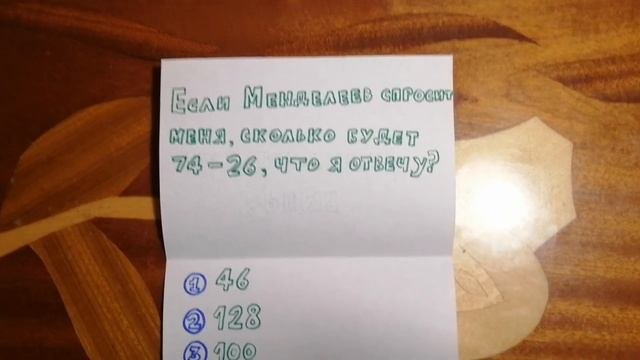 Если Менделеев спросит
меня, сколько будет
74-26, что я отвечу?
① 46
② 128
③ 100